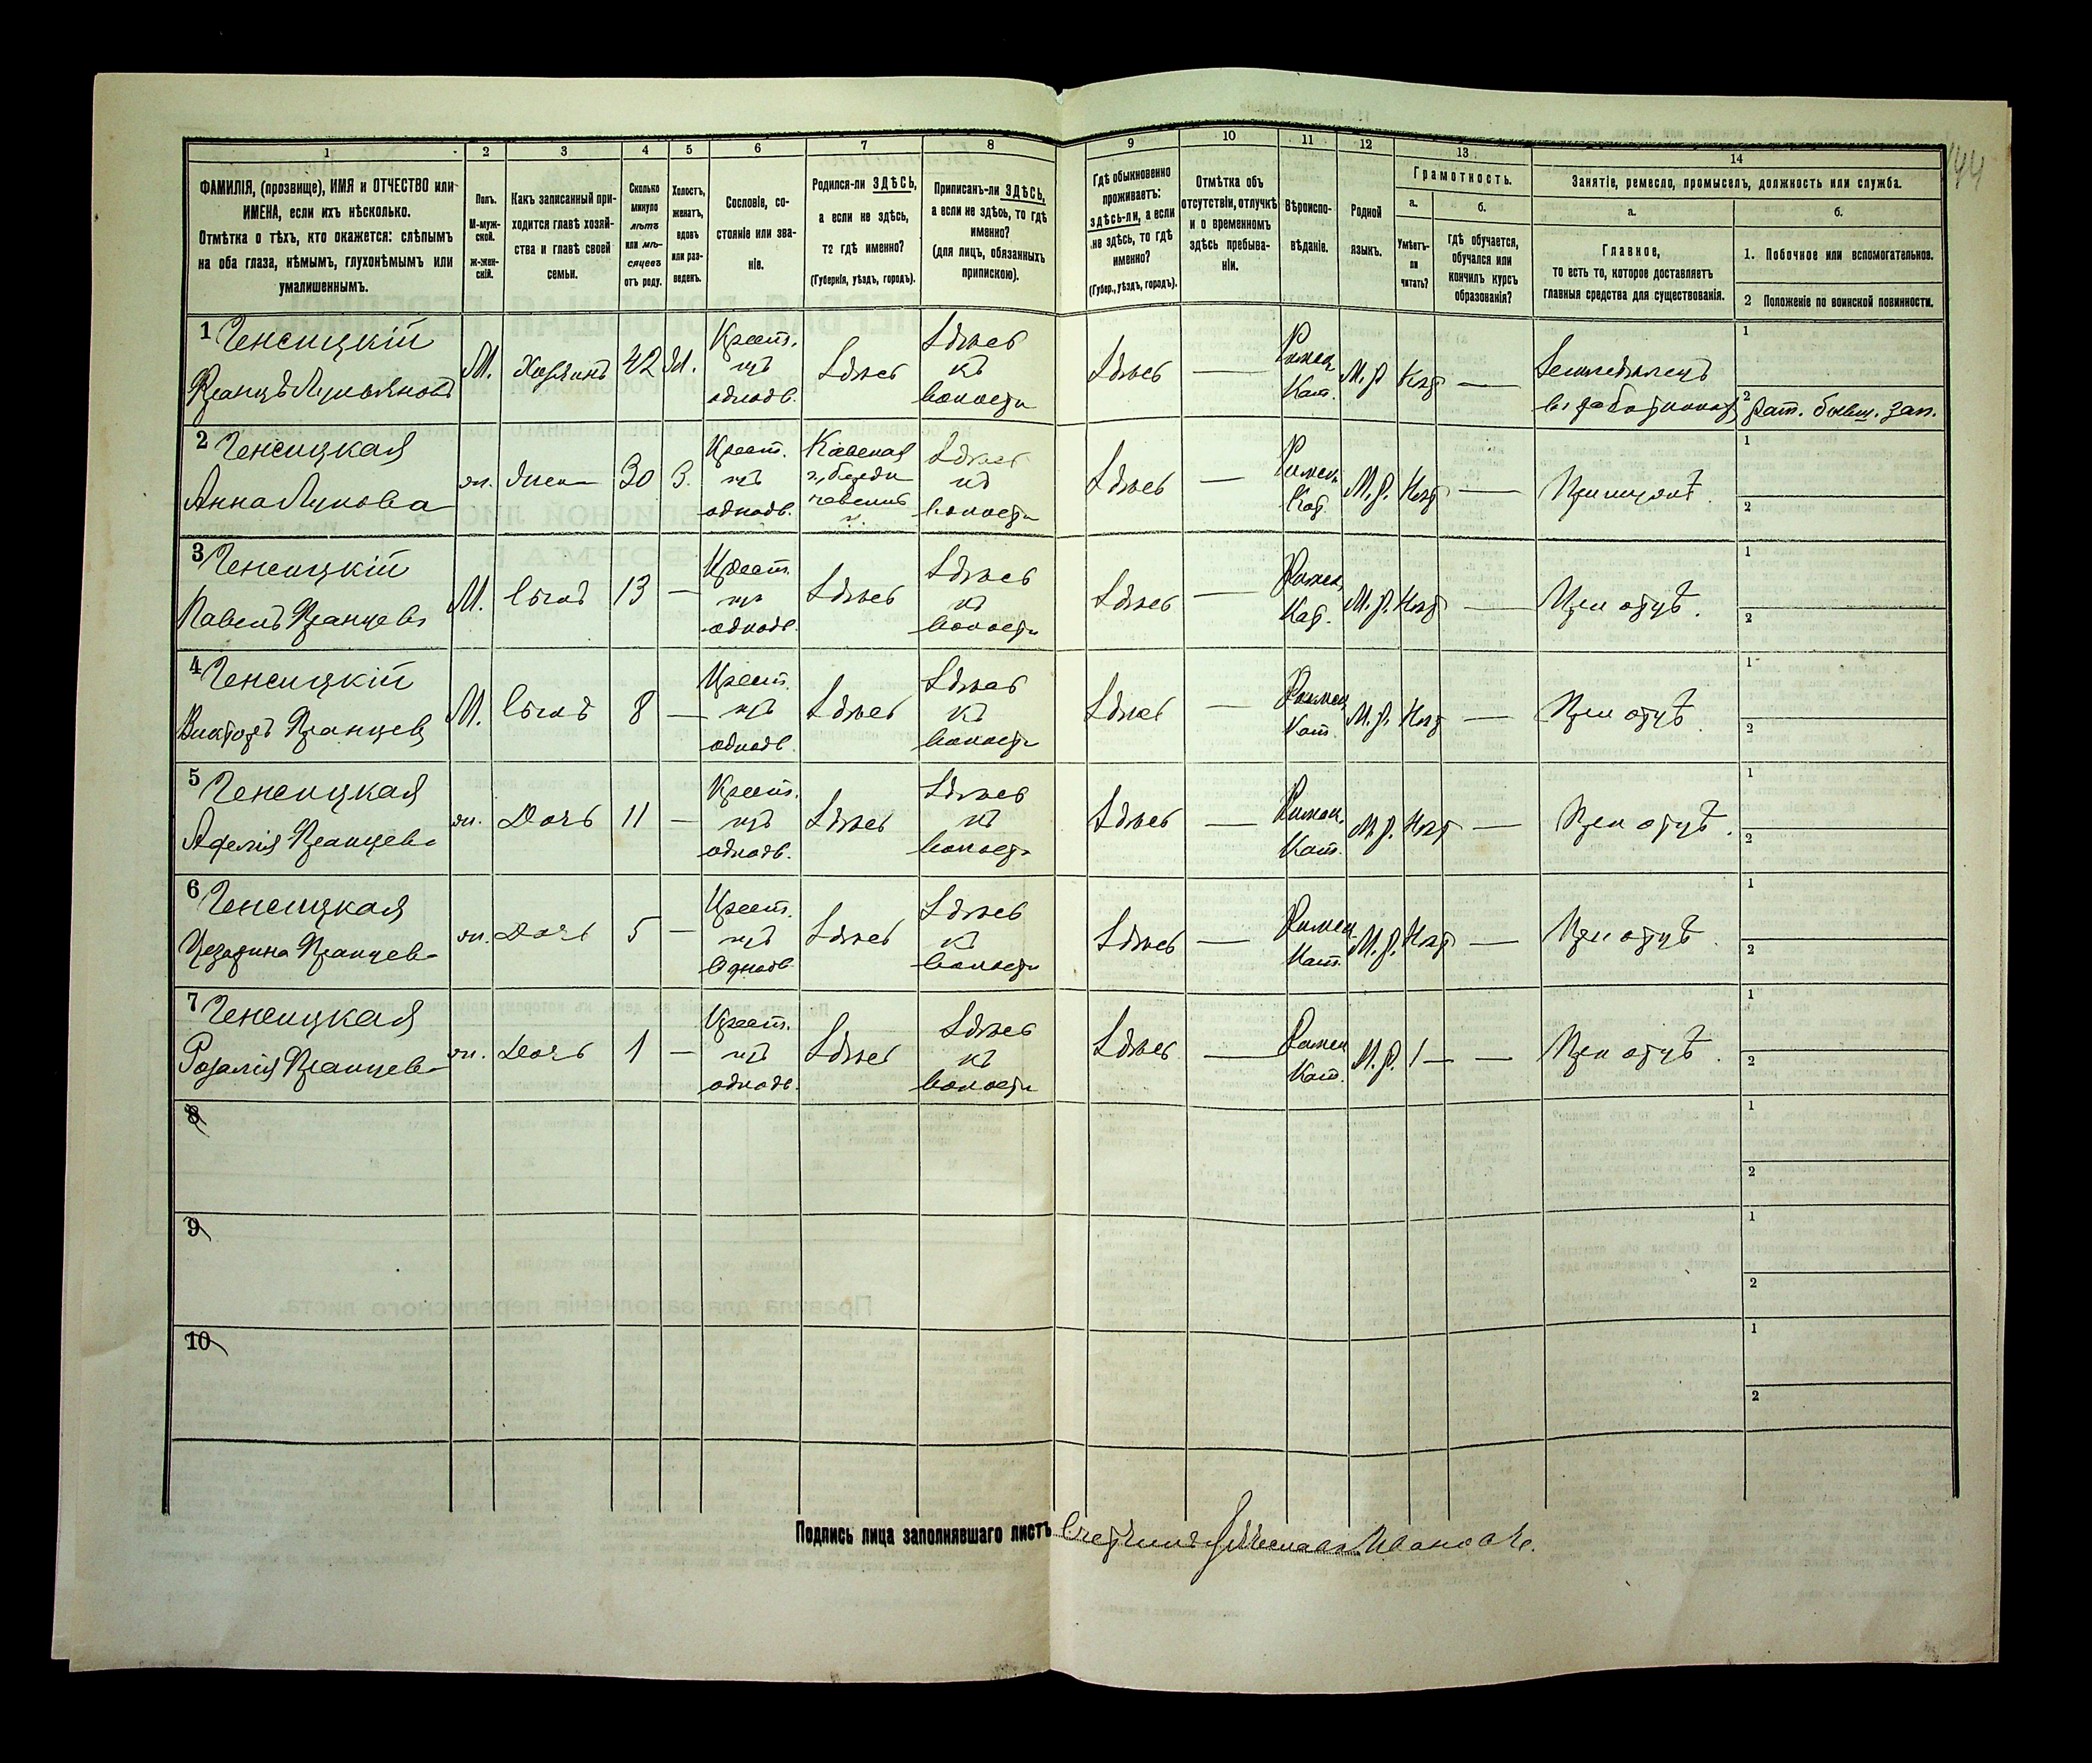 144
1 2 3 4 5 6 7 8 9 10 11 12 13 14
ФАМИЛІЯ, (прозвище), ИМЯ и ОТЧЕСТВО или
ИМЕНА, если ихъ нѣсколько.
Отмѣтка о тѣхъ, кто окажется: слѣпымъ
на оба глаза, нѣмымъ, глухонѣмымъ или
умалишеннымъ.
Полъ.
М-муж-
ской.
Ж-жен-
скій.
Какъ записанный при-
ходится главѣ хозяй-
ства и главѣ своей
семьи.
Сколько
минуло
лѣтъ
или мѣ-
сяцевъ
отъ роду.
Холостъ,
женатъ,
вдовъ
или раз-
веденъ.
Сословіе, со-
стояніе или зва-
ніе.
Родился-ли ЗДѢСЬ,
а если не здѣсь,
то гдѣ именно?
(Губернія, уѣздъ, городъ).
Приписанъ-ли ЗДѢСЬ,
а если не здѣсь, то гдѣ
именно?
(для лицъ, обязанныхъ
припискою).
Гдѣ обыкновенно
проживаетъ:
здѣсь-ли, а если
не здѣсь, то гдѣ
именно?
(Губер., уѣздъ, городъ).
Отмѣтка объ
отсутствіи, отлучкѣ
и о временномъ
здѣсь пребыва-
ніи.
Вѣроиспо-
вѣданіе.
Родной
языкъ.
Грамотность.
а.
Умѣетъ-
ли
читать?
б.
гдѣ обучается,
обучался или
кончилъ курсъ
образованія?
Занятіе, ремесло, промыселъ, должность или служба.
а.
Главное,
то есть то, которое доставляетъ
главныя средства для существованія.
б.
1. Побочное или вспомогательное.
2 Положеніе по воинской повинности.
1 Ченсицкій
М. Хозяинъ 42 Крест. изъ однодв. Здѣсь Здѣсь къ волости Здѣсь — Римск. Кат. М. Р. — Земледѣлецъ
1
2 рат.
2 Ченсицкая
Анна Лукова
ж. Жена 30 З. Крест. изъ однодв. Кіевская г., Бердичевскій у. Здѣсь къ волости Здѣсь — Римск. Кат. М. Р. Нѣт —
1
2
3 Ченсицкій
Павелъ Францевъ
М. Сынъ 13 — Крест. изъ однодв. Здѣсь Здѣсь къ волости Здѣсь — Римск. Кат. М. Р. Нѣт — При отцѣ.
1
2
4 Ченсицкій
Викторъ Францевъ
М. Сынъ 8 — Крест. изъ однодв. Здѣсь Здѣсь къ волости Здѣсь — Римск. Кат. М. Р. Нѣт — При отцѣ.
1
2
5 Ченсицкая
Аделія Францева
ж. Дочь 11 — Крест. изъ однодв. Здѣсь Здѣсь къ волости Здѣсь — Римск. Кат. М. Р. Нѣт — При отцѣ.
1
2
6 Ченсицкая
Цезарина Францева
ж. Дочь 5 — Крест. изъ однодв. Здѣсь Здѣсь къ волости Здѣсь — Римск. Кат. М. Р. Нѣт — При отцѣ.
1
2
7 Ченсицкая
Розалія Францева
ж. Дочь 1 — Крест. изъ однодв. Здѣсь Здѣсь къ волости Здѣсь — Римск. Кат. М. Р. — — При отцѣ.
1
2
8
1
2
9
1
2
10
1
2
Подпись лица заполнявшаго листъ Счетчикъ